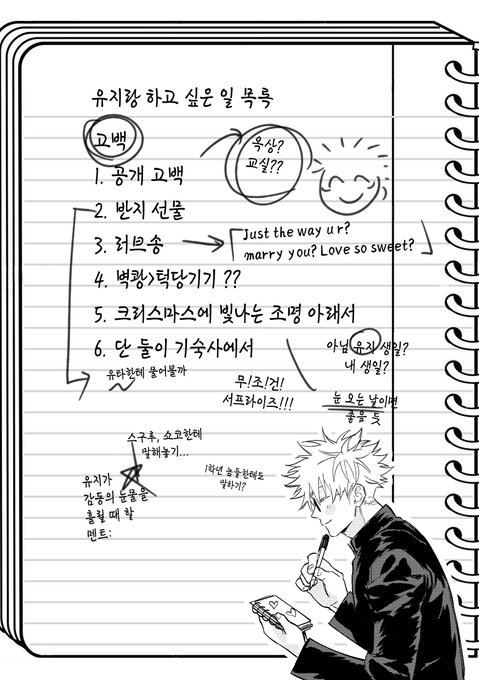 유지랑 하고 싶은 일 목록
고백
옥상?
교실??
1. 공개 고백
2. 반지 선물
3. 러브송
Just the way u r?
marry you? Love so sweet?
4. 벽쾅>턱당기기 ??
5. 크리스마스에 빛나는 조명 아래서
6. 단 둘이 기숙사에서
아님 유지 생일?
내 생일?
유타한테 물어볼까
무!조!건!
서프라이즈!!!
눈 오는 날이면
좋을 듯
스구루, 쇼코한테
말해놓기...
1학년 놈들한테도
말하기?
유지가
감동의 눈물을
흘릴 때 할
멘트: